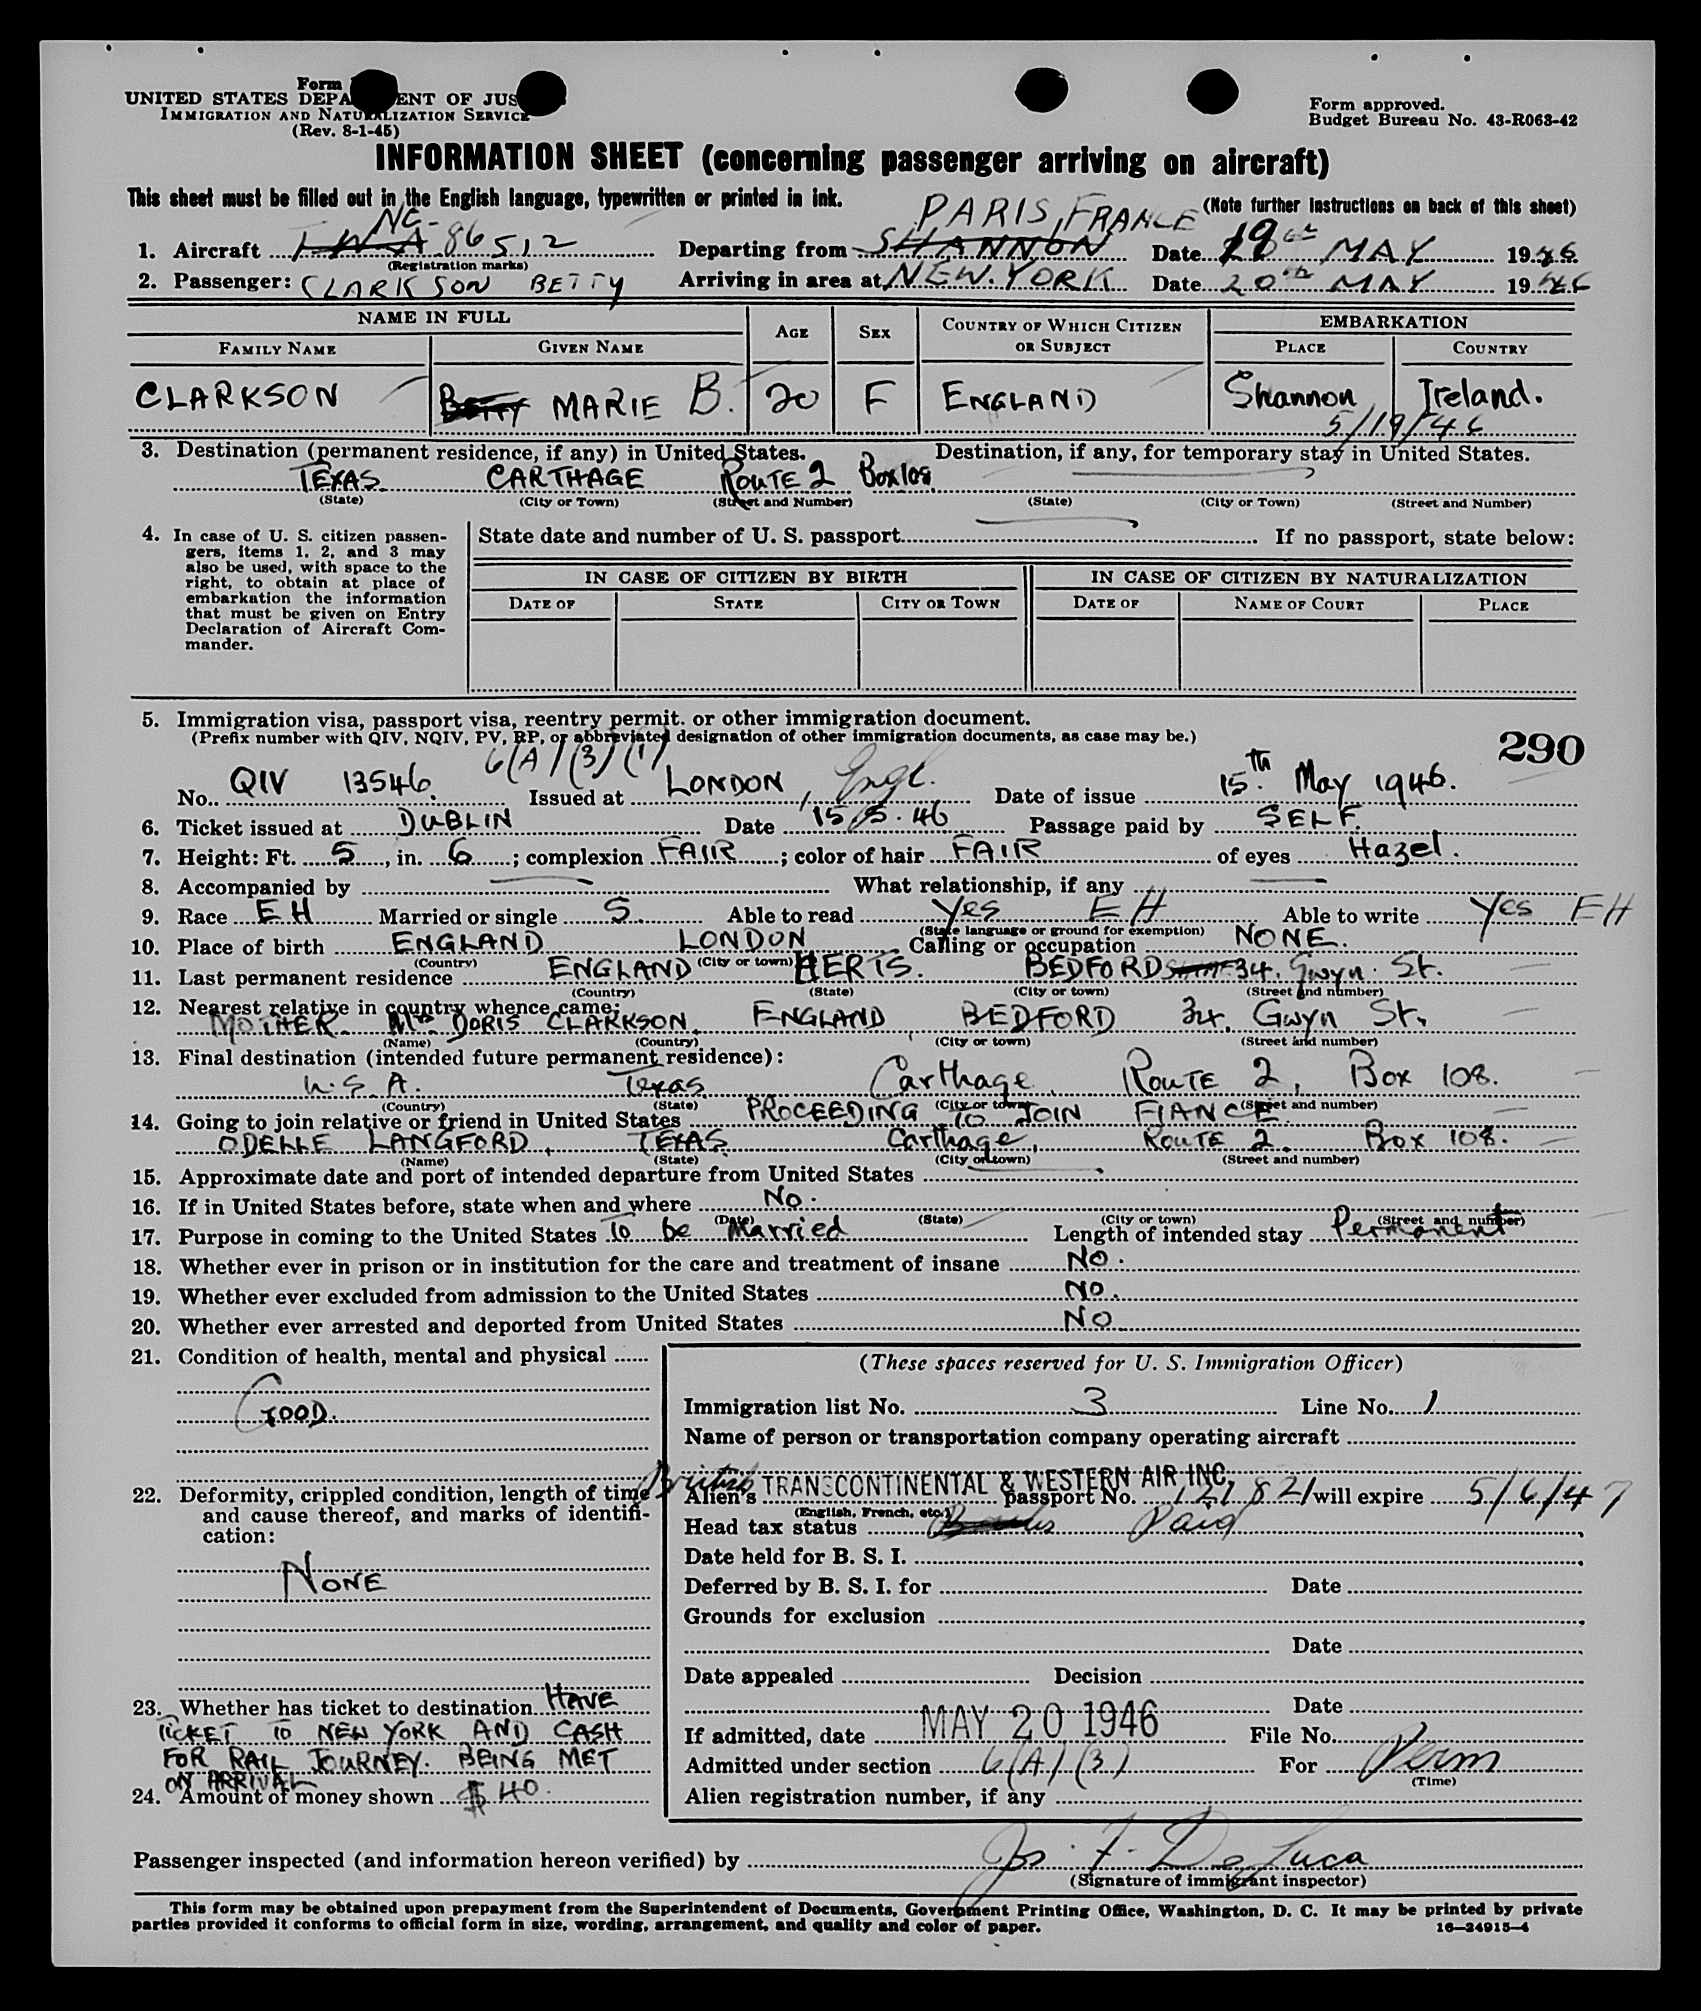 Form
UNITED STATES DEPA ENT OF JUS
IMMIGRATION AND NATURALIZATION SERVICE
(Rev. 8-1-45)
Form approved.
Budget Bureau No. 43-R063-42
INFORMATION SHEET (concerning passenger arriving on aircraft)
This sheet must be filled out in the English language, typewritten or printed in ink.
(Note further instructions on back of this sheet)
1. Aircraft TWA NC-86512 Departing from SHANNON PARIS, FRANCE Date 19th MAY 1946
(Registration marks)
2. Passenger: CLARKSON BETTY Arriving in area at NEW YORK Date 20th MAY 1946
NAME IN FULL AGE SEX COUNTRY OF WHICH CITIZEN OR SUBJECT EMBARKATION
FAMILY NAME GIVEN NAME PLACE COUNTRY
CLARKSON BETTY MARIE B. 20 F ENGLAND Shannon Ireland.
5/19/46
3. Destination (permanent residence, if any) in United States. Destination, if any, for temporary stay in United States.
TEXAS CARTHAGE ROUTE 2 Box 108
(State) (City or Town) (Street and Number) (State) (City or Town) (Street and Number)
4. In case of U. S. citizen passengers, items 1, 2, and 3 may also be used, with space to the right, to obtain at place of embarkation the information that must be given on Entry Declaration of Aircraft Commander.
State date and number of U. S. passport If no passport, state below:
IN CASE OF CITIZEN BY BIRTH IN CASE OF CITIZEN BY NATURALIZATION
DATE OF STATE CITY OR TOWN DATE OF NAME OF COURT PLACE
5. Immigration visa, passport visa, reentry permit. or other immigration document.
(Prefix number with QIV, NQIV, PV, RP, or abbreviated designation of other immigration documents, as case may be.)
290
6(A)(3)(1)
No. QIV 13546. Issued at LONDON, Engl. Date of issue 15th May 1946.
6. Ticket issued at DUBLIN Date 15.5.46 Passage paid by SELF.
7. Height: Ft. 5, in. 6; complexion FAIR; color of hair FAIR of eyes Hazel.
8. Accompanied by What relationship, if any
9. Race EH Married or single S. Able to read Yes EH Able to write Yes EH
(State language or ground for exemption)
10. Place of birth ENGLAND LONDON Calling or occupation NONE.
(Country) (City or town)
11. Last permanent residence ENGLAND HERTS. BEDFORD 34, Gwyn St.
(Country) (State) (City or town) (Street and number)
12. Nearest relative in country whence came:
MOTHER Mrs DORIS CLARKSON. ENGLAND BEDFORD 34, Gwyn St.
(Name) (Country) (City or town) (Street and number)
13. Final destination (intended future permanent residence):
U.S.A. Texas. Carthage. ROUTE 2, Box 108.
(Country) (State) (City or town) (Street and number)
14. Going to join relative or friend in United States PROCEEDING TO JOIN FIANCE.
ODELLE LANGFORD, TEXAS Carthage, ROUTE 2. Box 108.
(Name) (State) (City or town) (Street and number)
15. Approximate date and port of intended departure from United States
16. If in United States before, state when and where No.
(Date) (State) (City or town) (Street and number)
17. Purpose in coming to the United States To be Married Length of intended stay Permanent
18. Whether ever in prison or in institution for the care and treatment of insane No.
19. Whether ever excluded from admission to the United States No.
20. Whether ever arrested and deported from United States No
21. Condition of health, mental and physical
GOOD.
22. Deformity, crippled condition, length of time and cause thereof, and marks of identification:
NONE
23. Whether has ticket to destination HAVE
TICKET TO NEW YORK AND CASH
FOR RAIL JOURNEY. BEING MET
ON ARRIVAL
24. Amount of money shown $40.
(These spaces reserved for U. S. Immigration Officer)
Immigration list No. 3 Line No. 1
Name of person or transportation company operating aircraft
TRANSCONTINENTAL & WESTERN AIR INC.
Alien's British passport No. 12182/ will expire 5/6/47
(English, French, etc.)
Head tax status Paid
Date held for B. S. I.
Deferred by B. S. I. for Date
Grounds for exclusion
Date
Date appealed Decision
Date
If admitted, date MAY 20 1946 File No.
Admitted under section 6(A)(3) For Perm
(Time)
Alien registration number, if any
Passenger inspected (and information hereon verified) by Jos. F. DeLuca
(Signature of immigrant inspector)
This form may be obtained upon prepayment from the Superintendent of Documents, Government Printing Office, Washington, D. C. It may be printed by private
parties provided it conforms to official form in size, wording, arrangement, and quality and color of paper.
16—24915-4